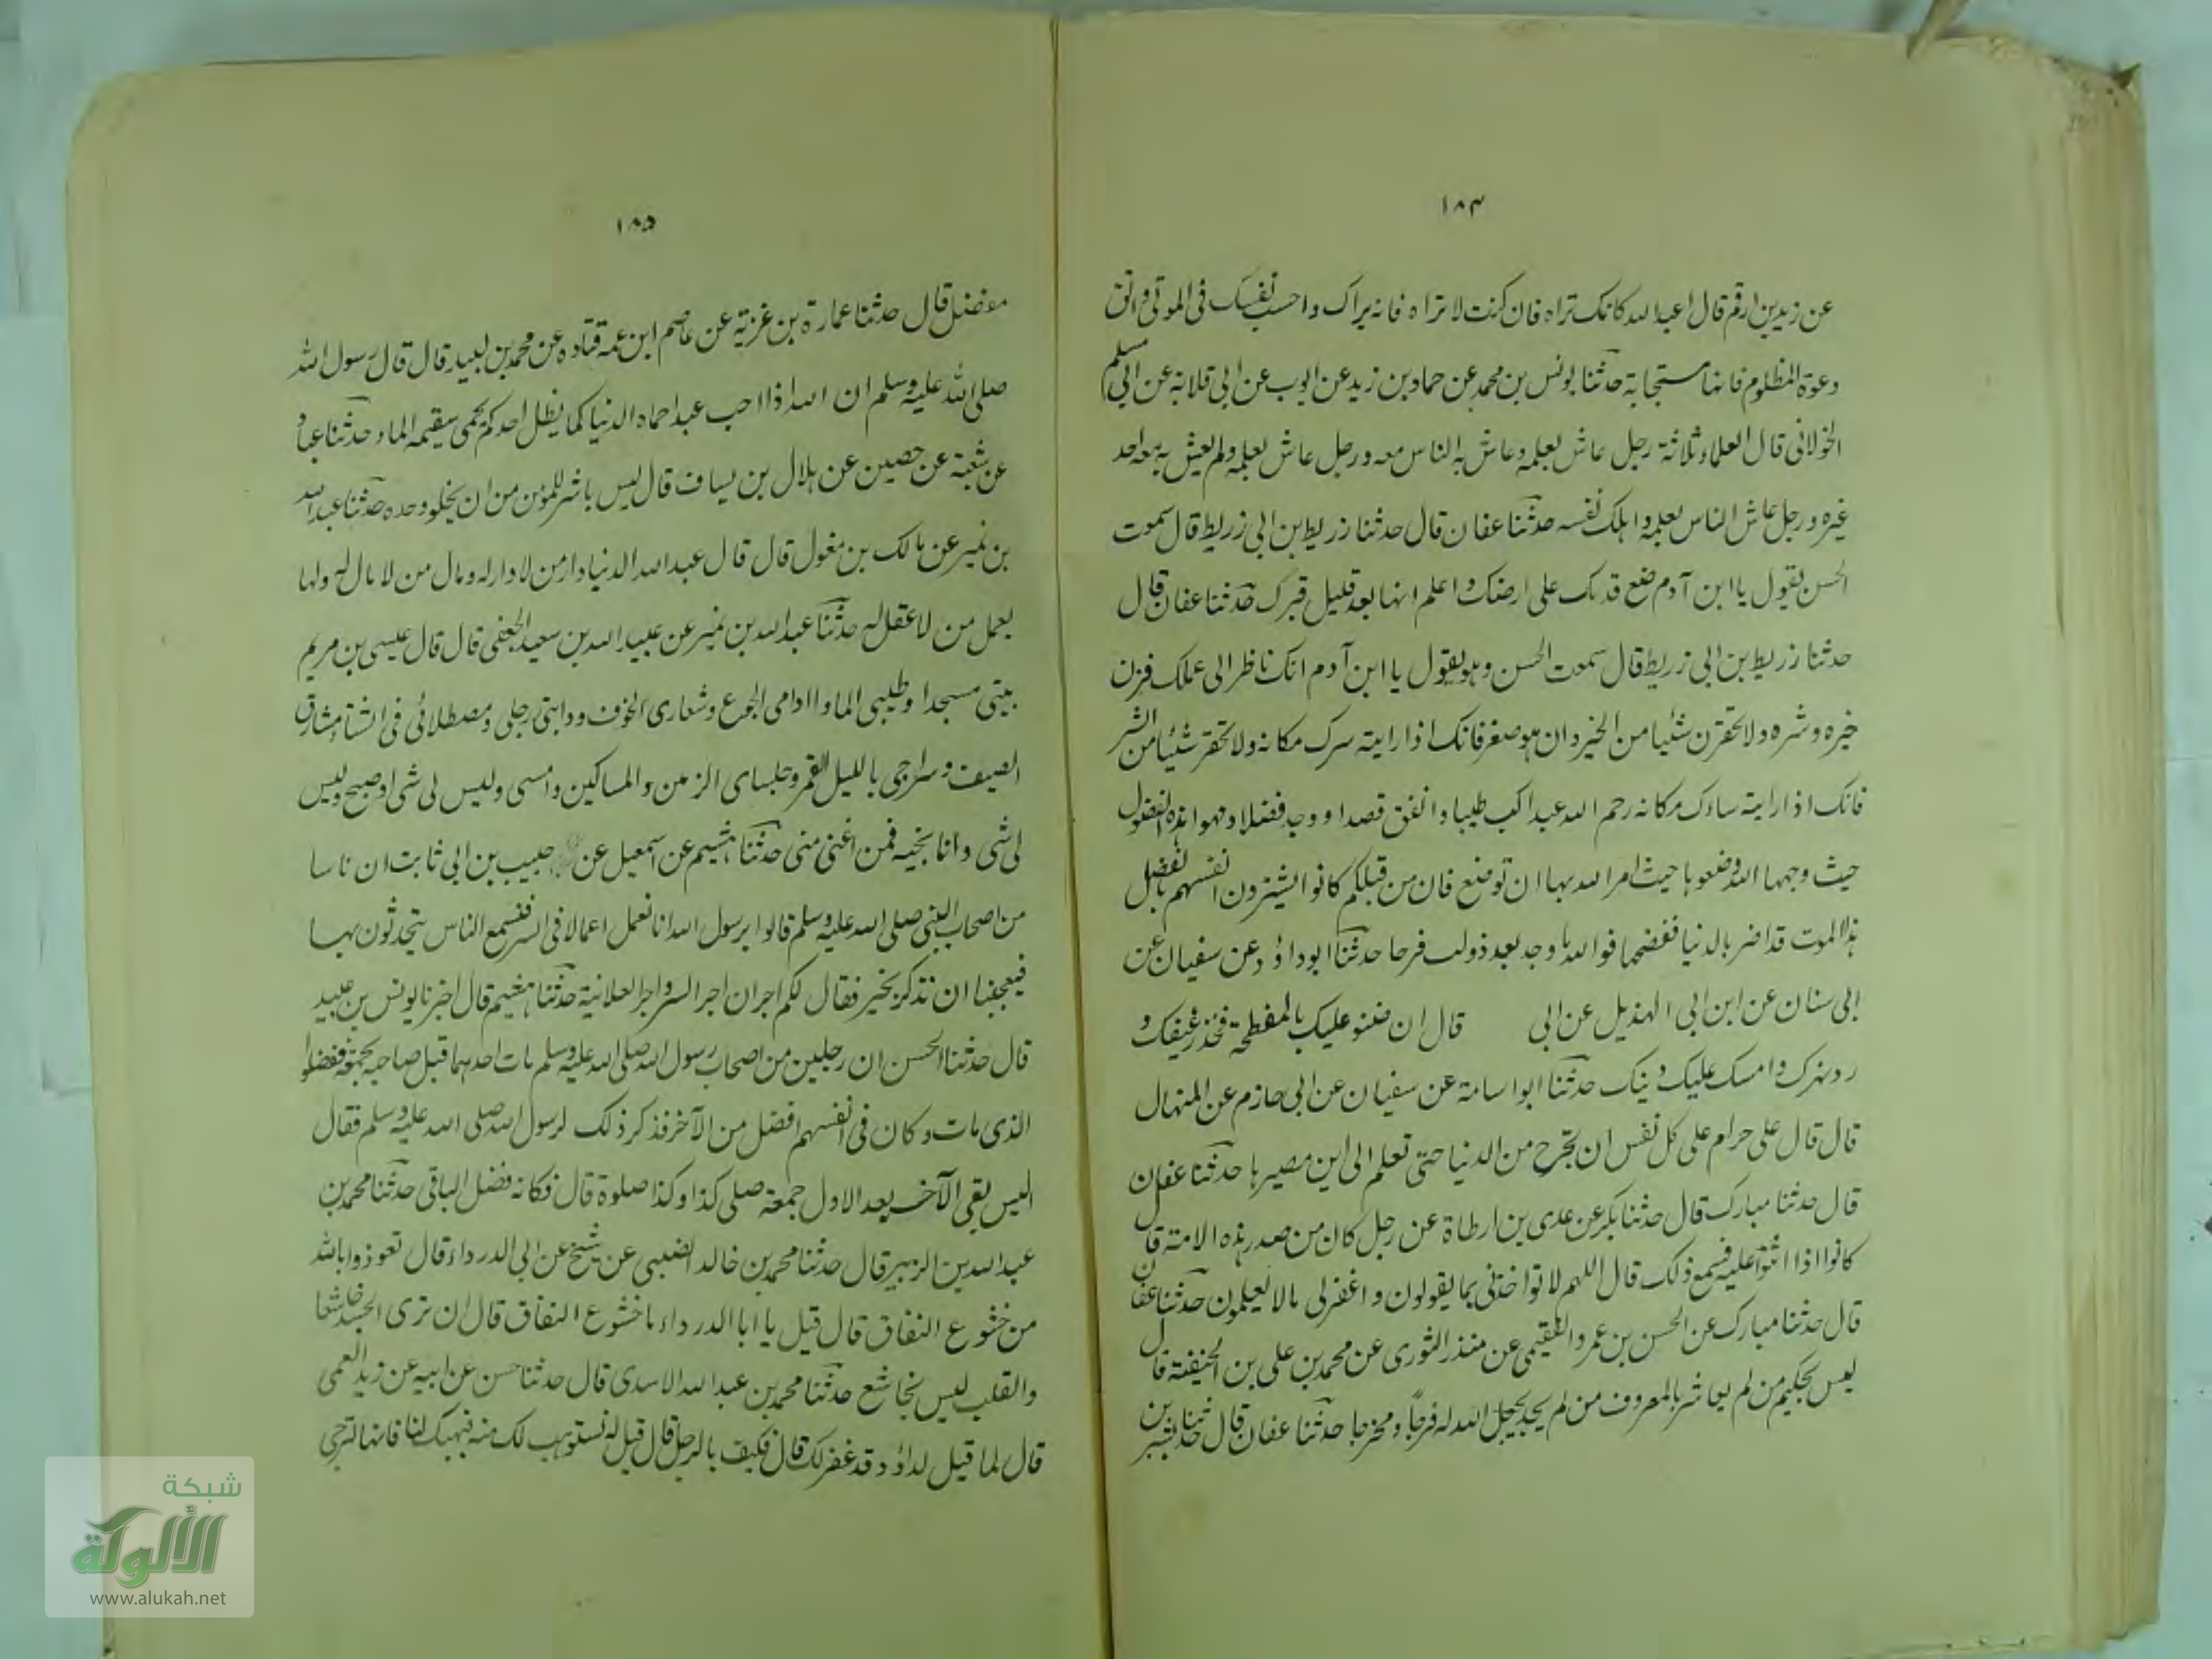 ١٨٤
عن زيد بن ارقم قال اعبد الله كانك تراه فان كنت لا تراه فانه يراك واحسب نفسك فى الموتى واتق
دعوة المظلوم فانها مستجابة حدثنا يونس بن محمد عن حماد بن زيد عن ايوب عن ابى قلابة عن ابى مسلم
الخولانى قال العلماء ثلاثة رجل عاش بعلمه وعاش به الناس معه ورجل عاش بعلمه ولم يعش به معه احد
غيره ورجل عاش الناس بعلمه واهلك نفسه حدثنا عفان قال حدثنا زريط بن ابى زريط قال سمعت
الحسن يقول يا ابن آدم ضع قدمك على ارضك واعلم انها بعد قليل قبرك حدثنا عفان قال
حدثنا زريط بن ابى زريط قال سمعت الحسن وهو يقول يا ابن آدم انك ناظر الى عملك فزن
خيره وشره ولا تحقرن شئيا من الخير وان هو صغر فانك اذا رايته سرك مكانه ولا تحقر شئيا من الشر
فانك اذا رايته ساءك مكانه رحم الله عبدا كسب طيبا وانفق قصدا ووجه فضلا وجهوا هذه الفضول
حيث وجهها الله وضعوها حيث امر الله بها ان توضع فان من قبلكم كانوا يشترون انفسهم بالفضل
هذا الموت قد اضر بالدنيا ففضحها فوالله ما وجد بعد ذو لب فرحا حدثنا ابو داؤد عن سفيان عن
ابى سنان عن ابن ابى الهذيل عن ابى قال ان ضنوا عليك بالمفطحة فخذ رغيفك و
رد نهرك وامسك عليك دينك حدثنا ابو اسامة عن سفيان عن ابى حازم عن المنهال
قال قال على حرام على كل نفس ان تخرج من الدنيا حتى تعلم الى اين مصيرها حدثنا عفان
قال حدثنا مبارك قال حدثنا بكر عن عدى بن ارطاة عن رجل كان من صدر هذه الامة قال
كانوا اذا اثنوا عليه فسمع ذلك قال اللهم لا تواخذنى بما يقولون واغفر لى ما لا يعلمون حدثنا عفان
قال حدثنا مبارك عن الحسن بن عمرو الفقيمى عن منذر الثورى عن محمد بن على بن الحنيفة قال
ليس بحكيم من لم يعاشر بالمعروف من لم يجد يجعل الله له فرجاً ومخرجا حدثنا عفان قال حدثنا بشر بن
١٨٥
مفضل قال حدثنا عمارة بن غزية عن عاصم ابن عمه قتادة عن محمد بن لبيد قال قال رسول الله
صلى الله عليه وسلم ان الله اذا احب عبدا حماه الدنيا كما يظل احدكم يحمى سقيمه الماء حدثنا عباد
عن شعبة عن حصين عن هلال بن يساف قال ليس باشر للمؤمن من ان يخلو وحده حدثنا عبد الله
بن نمير عن مالك بن مغول قال قال عبد الله الدنيا دار من لا دار له ومال من لا مال له ولها
يعمل من لا عقل له حدثنا عبد الله بن نمير عن عبيد الله بن سعيد الجعفى قال قال عيسى بن مريم
بيتى مسجدا وطيبى الماء وادامى الجوع وشعارى الخوف ودابتى رجلى ومصطلائى فى الشتاء مشارق
الصيف وسراجى بالليل القمر وجلساى الزمن والمساكين وامسى وليس لى شى اوصبح وليس
لى شى وانا بخير فمن اغنى منى حدثنا هشيم عن اسمعيل عن حبيب بن ابى ثابت ان ناسا
من اصحاب النبى صلى الله عليه وسلم قالوا يرسول الله انا نعمل اعمالا فى السر فنسمع الناس يتحدثون بها
فيعجبنا ان نذكر بخير فقال لكم اجران اجر السر واجر العلانية حدثنا هشيم قال اخبرنا يونس بن عبيد
قال حدثنا الحسن ان رجلين من اصحاب رسول الله صلى الله عليه وسلم مات احدهما قبل صاحبه بجمعة ففضلوا
الذى مات وكان فى انفسهم افضل من الآخر فذكر ذلك لرسول الله صلى الله عليه وسلم فقال
اليس بقى الآخر بعد الاول جمعة صلى كذا وكذا صلوة قال فكانه فضل الباقى حدثنا محمد بن
عبد الله بن الزبير قال حدثنا محمد بن خالد الضبيى عن شيخ عن ابى الدرداء قال تعوذوا بالله
من خشوع النفاق قال قيل يا ابا الدرداء ما خشوع النفاق قال ان ترى الجسد خاشعا
والقلب ليس بخاشع حدثنا محمد بن عبد الله الاسدى قال حدثنا حسن عن ابيه عن زيد العمى
قال لما قيل لداؤد قد غفر لك قال فكيف بالرجل قال قيل له نستوهب لك منه فيهبك لنا فانها لترجى
شبكة
الألوكة
www.alukah.net